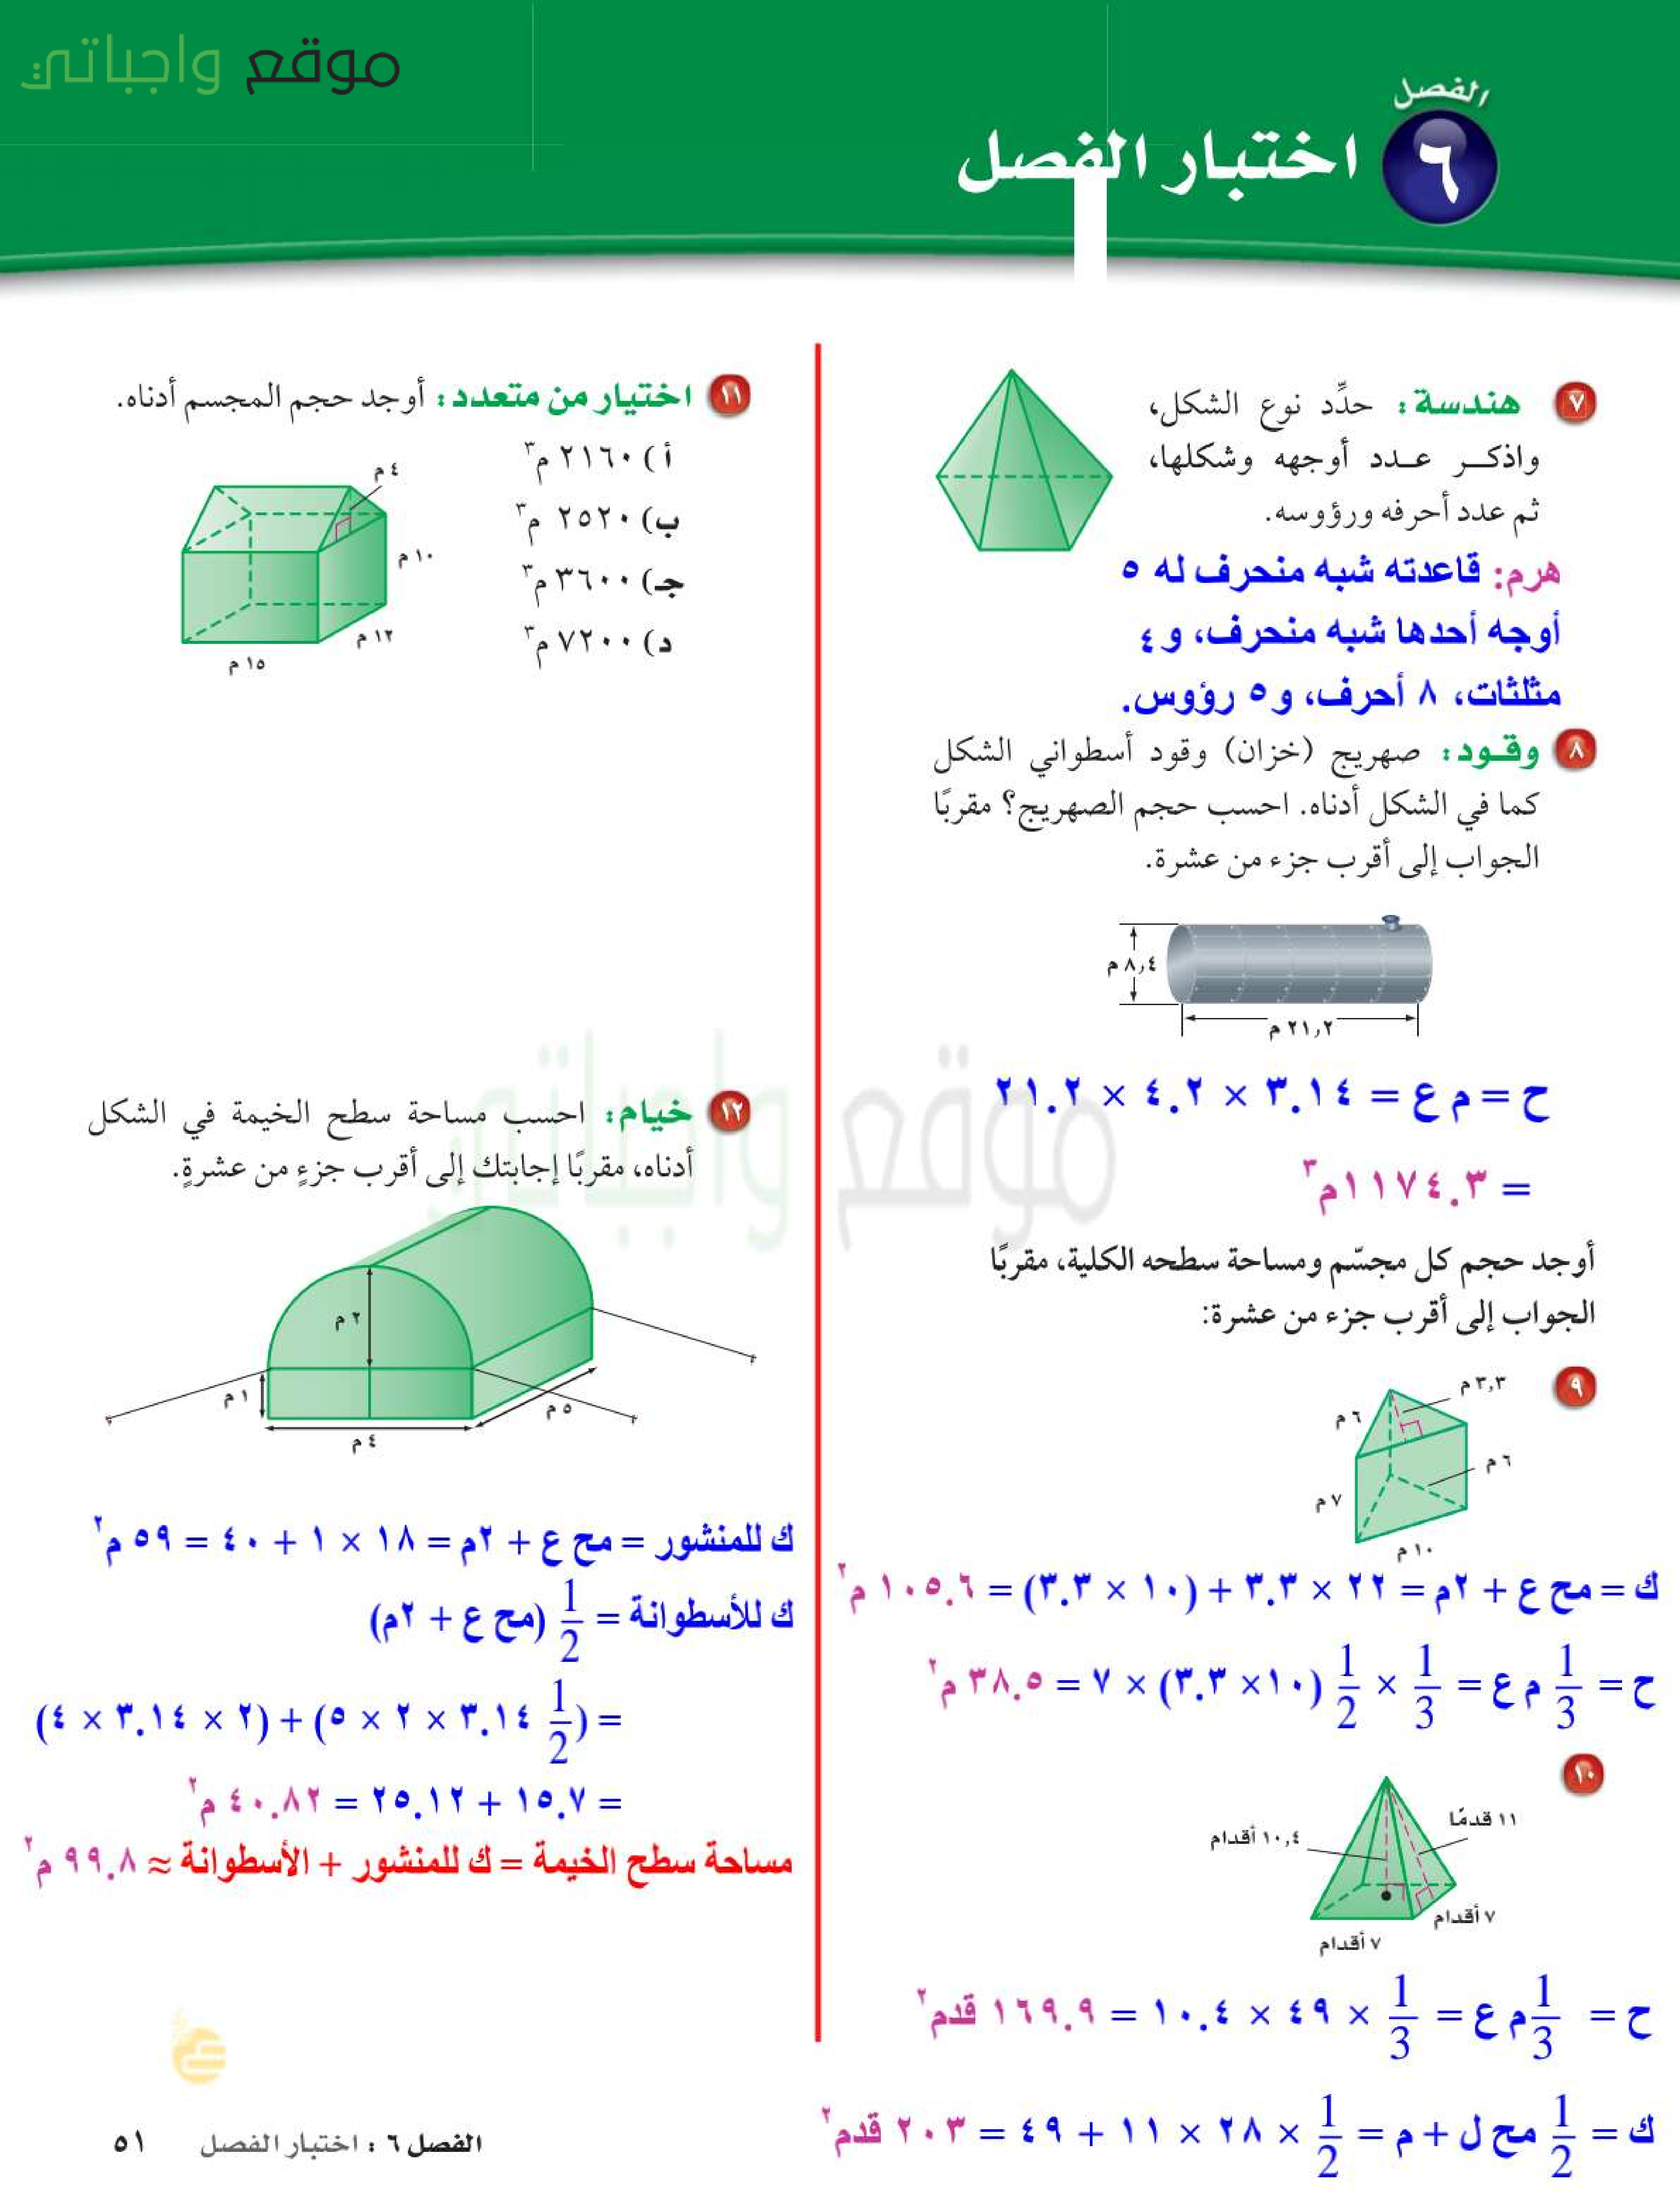 موقع واجباتي
الفصل
٦
اختبار الفصل
٧ هندسة: حدِّد نوع الشكل،
واذكر عدد أوجهه وشكلها،
ثم عدد أحرفه ورؤوسه.
هرم: قاعدته شبه منحرف له ٥
أوجه أحدها شبه منحرف، و ٤
مثلثات، ٨ أحرف، و ٥ رؤوس.
٨ وقود: صهريج (خزان) وقود أسطواني الشكل
كما في الشكل أدناه. احسب حجم الصهريج؟ مقربًا
الجواب إلى أقرب جزء من عشرة.
٨,٤ م
٢١,٢ م
ح = م ع = ٣.١٤ × ٤.٢ × ٢١.٢
= ١١٧٤.٣م٣
أوجد حجم كل مجسّم ومساحة سطحه الكلية، مقربًا
الجواب إلى أقرب جزء من عشرة:
٩
٣,٣ م
٦ م
٦ م
٧ م
١٠ م
ك = مح ع + ٢م = ٢٢ × ٣.٣ + (١٠ × ٣.٣) = ١٠٥.٦ م٢
ح = 1/3 م ع = 1/3 × 1/2 (١٠× ٣.٣) × ٧ = ٣٨.٥ م٢
١٠
١١ قدمًا
١٠,٤ أقدام
٧ أقدام
٧ أقدام
ح = 1/3 م ع = 1/3 × ٤٩ × ١٠.٤ = ١٦٩.٩ قدم٢
ك = 1/2 مح ل + م = 1/2 × ٢٨ × ١١ + ٤٩ = ٢٠٣ قدم٢
١١ اختيار من متعدد: أوجد حجم المجسم أدناه.
أ) ٢١٦٠ م٣
ب) ٢٥٢٠ م٣
جـ) ٣٦٠٠ م٣
د) ٧٢٠٠ م٣
٤ م
١٠ م
١٢ م
١٥ م
١٢ خيام: احسب مساحة سطح الخيمة في الشكل
أدناه، مقربًا إجابتك إلى أقرب جزءٍ من عشرةٍ.
٢ م
١ م
٥ م
٤ م
ك للمنشور = مح ع + ٢م = ١٨ × ١ + ٤٠ = ٥٩ م٢
ك للأسطوانة = 1/2 (مح ع + ٢م)
= (1/2 ٣.١٤ × ٢ × ٥) + (٢ × ٣.١٤ × ٤)
= ١٥.٧ + ٢٥.١٢ = ٤٠.٨٢ م٢
مساحة سطح الخيمة = ك للمنشور + الأسطوانة ≈ ٩٩.٨ م٢
موقع واجباتي
الفصل ٦ : اختبار الفصل ٥١